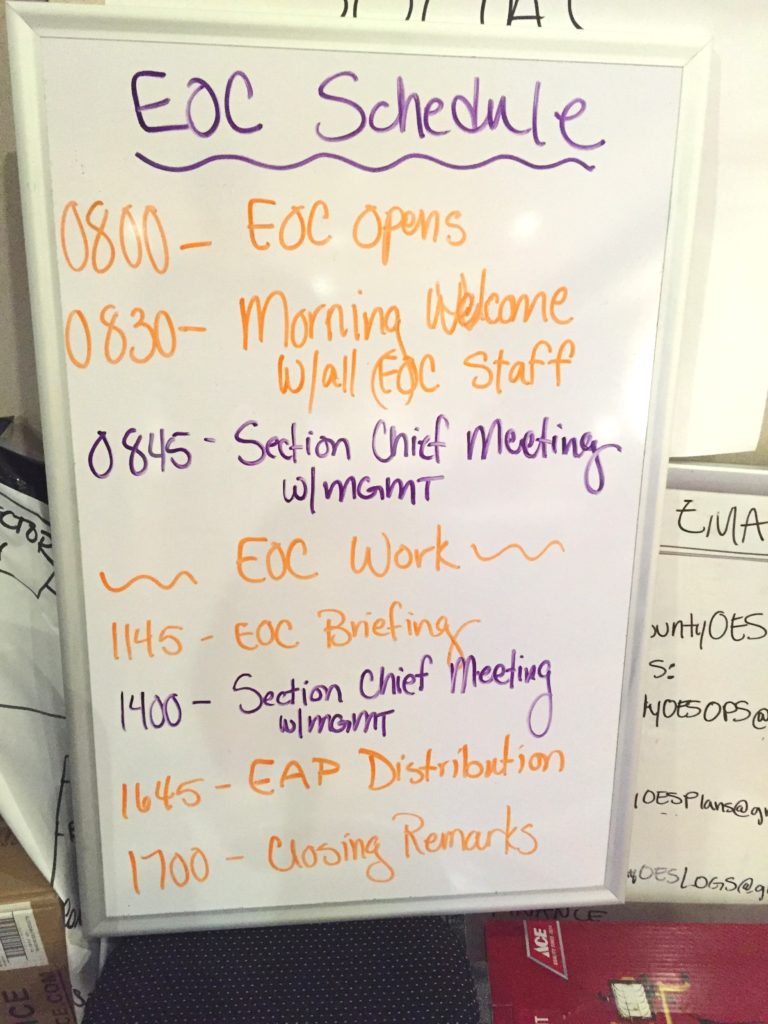 EOC Schedule
0800 - EOC Opens
0830 - Morning Welcome
w/all EOC Staff
0845 - Section Chief Meeting
w/MGMT
EOC Work
1145 - EOC Briefing
1400 - Section Chief Meeting
w/MGMT
1645 - EAP Distribution
1700 - Closing Remarks
EMA
ountyOES
S:
tyOESOPS@
OESPlans@g
OESLOGS@g
FINANCE
ACE